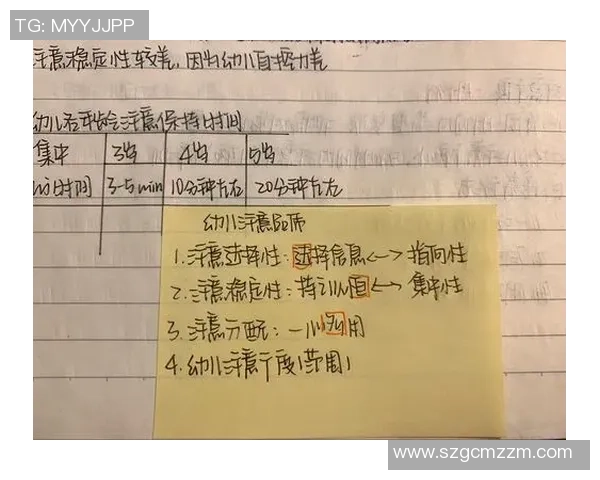 TG: MYYJJPP
注意稳定性较差,因为幼儿自控力差
幼儿各年龄注意保持时间
集中 3岁 4岁 5岁
的时间 3-5min 10分钟左右 20分钟左右
幼儿注意品质
1.注意选择性:选择信息<-->指向性
2.注意稳定性:持 间<-->集中性
3.注意分配:一心 用
4.幼儿注意广度(范围)
www.szgcmzzm.com